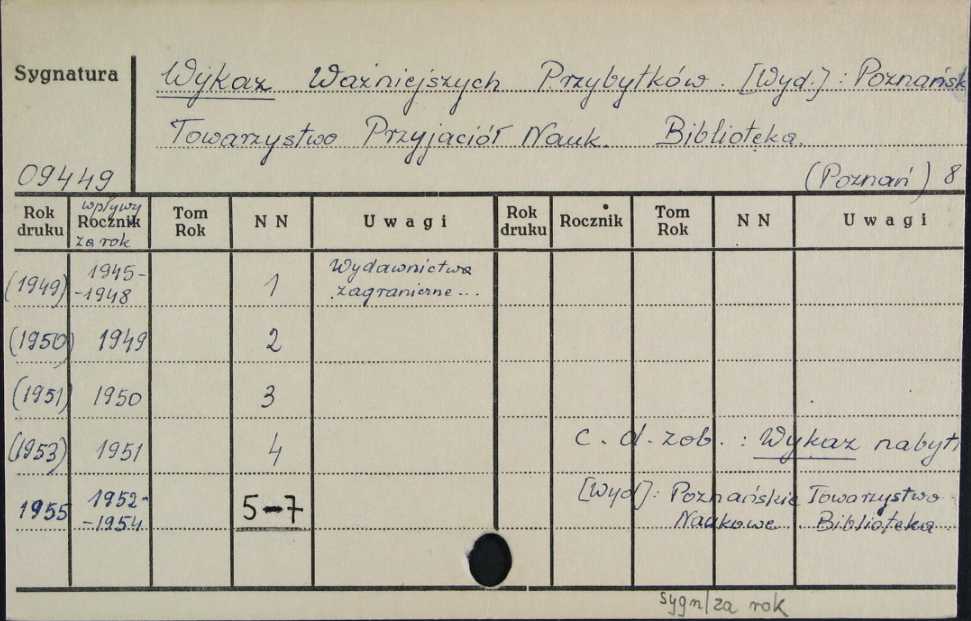 Sygnatura
Wykaz Ważniejszych Przybytków. [Wyd.]: Poznańsk
Towarzystwo Przyjaciół Nauk. Biblioteka.
09449
(Poznań) 8
Rok druku wpływy Rocznik za rok Tom Rok N N Uwagi Rok druku Rocznik Tom Rok N N Uwagi
(1949) 1945-
-1948 1 Wydawnictwa
zagraniczne...
(1950) 1949 2
(1951) 1950 3
(1953) 1951 4 c. d. zob. : Wykaz nabyt
1955 1952-
-1954 5-7 [Wyd]: Poznańskie Towarzystwo
Naukowe Biblioteka.
sygn/za rok